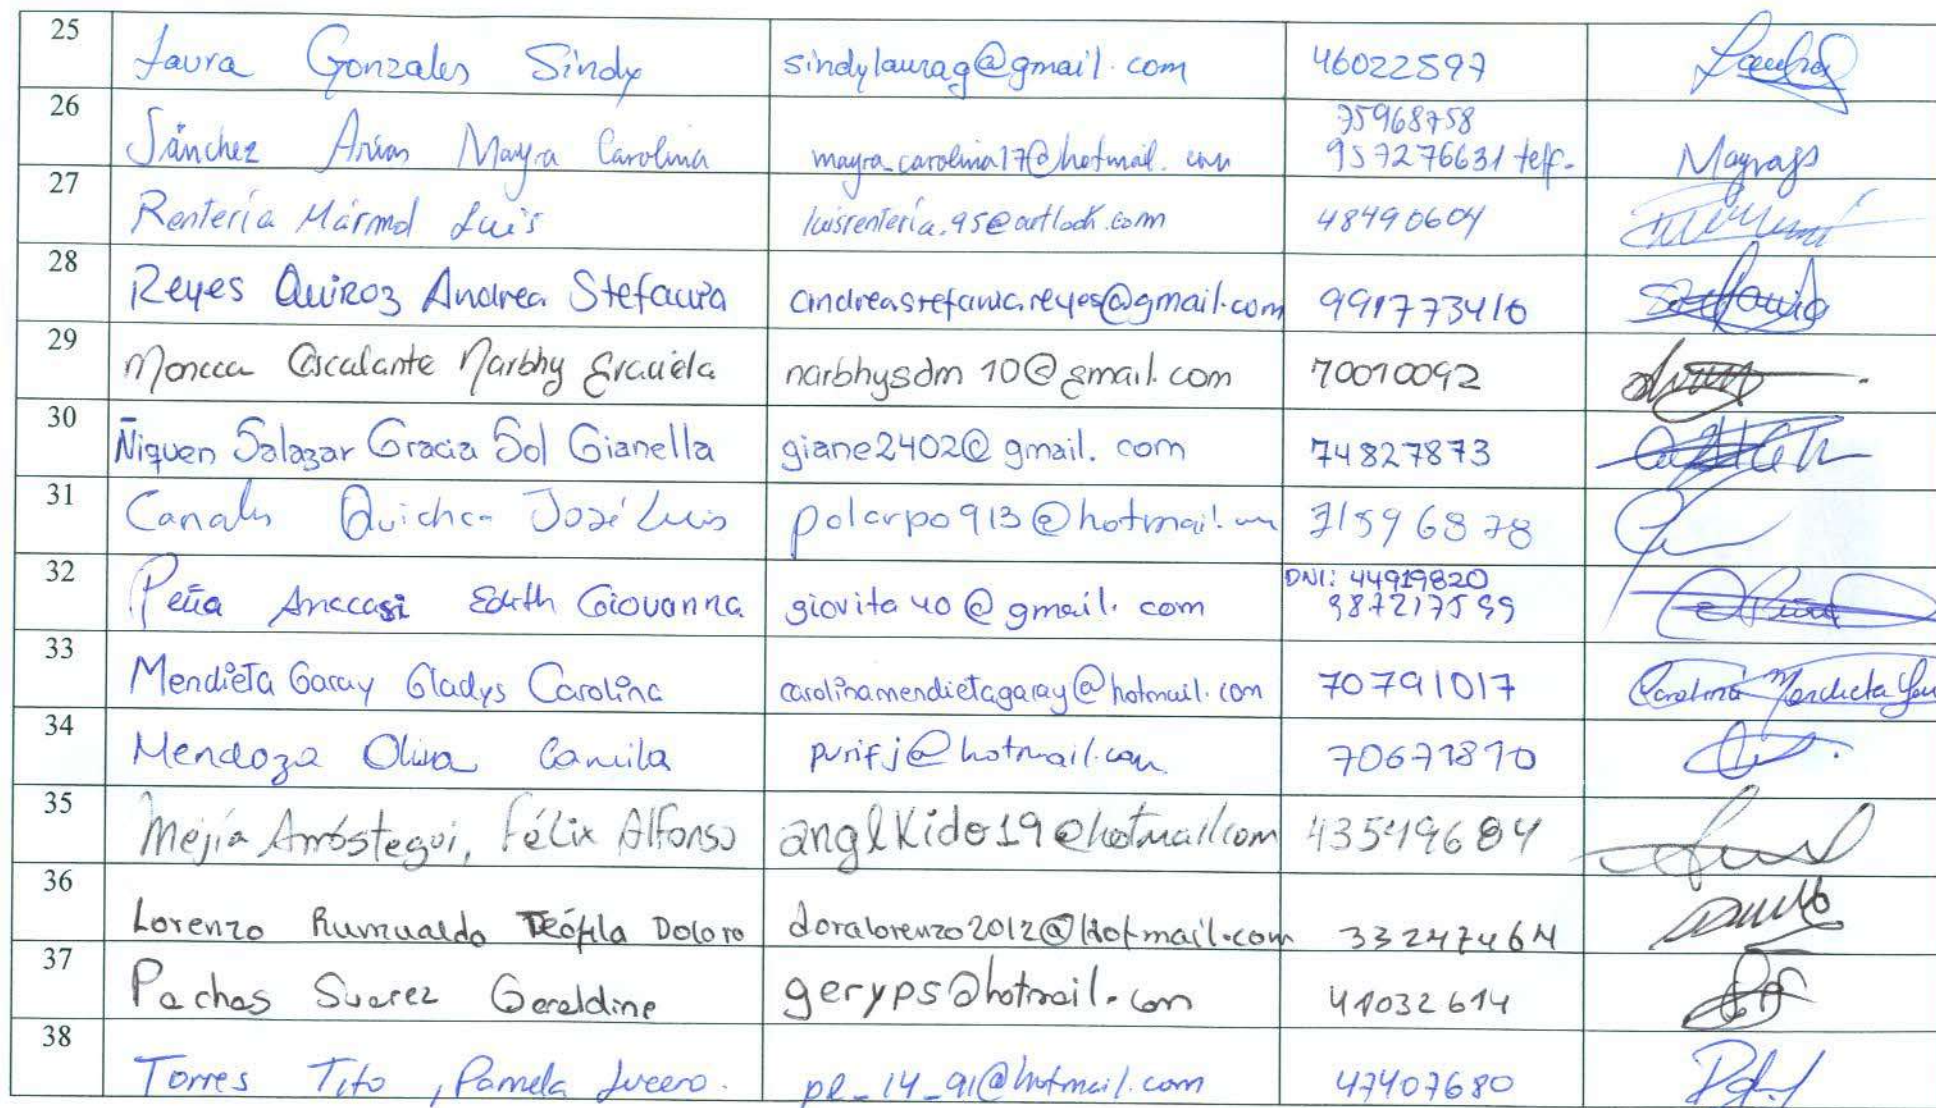 25 Laura Gonzales Sindy sindylaurag@gmail.com 46022597
26 Sánchez Arias Mayra Carolina mayra_carolina17@hotmail.com 75968758
957276631 telf. Mayrags
27 Rentería Mármol Luis luisrenteria.95@outlook.com 48490604
28 Reyes Quiroz Andrea Stefania andreastefania.reyes@gmail.com 991773410
29 Moncca Escalante Narbhy Graciela narbhysdm10@gmail.com 70010092
30 Ñiquen Salazar Gracia Sol Gianella giane2402@gmail.com 74827873
31 Canales Quichca José Luis polarpo913@hotmail.com 71596878
32 Peña Anccasi Edith Giovanna giovita40@gmail.com DNI: 44919820
987217599
33 Mendieta Garay Gladys Carolina carolinamendietagaray@hotmail.com 70791017 Carolina Mendieta
34 Mendoza Oliva Camila purifj@hotmail.com 70671810
35 Mejía Arróstegui, Félix Alfonso anglkido19@hotmail.com 43549684
36 Lorenzo Rumualdo Teófila Doloro doralorenzo2012@hotmail.com 33247464
37 Pachas Suarez Geraldine geryps@hotmail.com 41032614
38 Torres Tito, Pamela Lucero. pl_14_91@hotmail.com 47407680